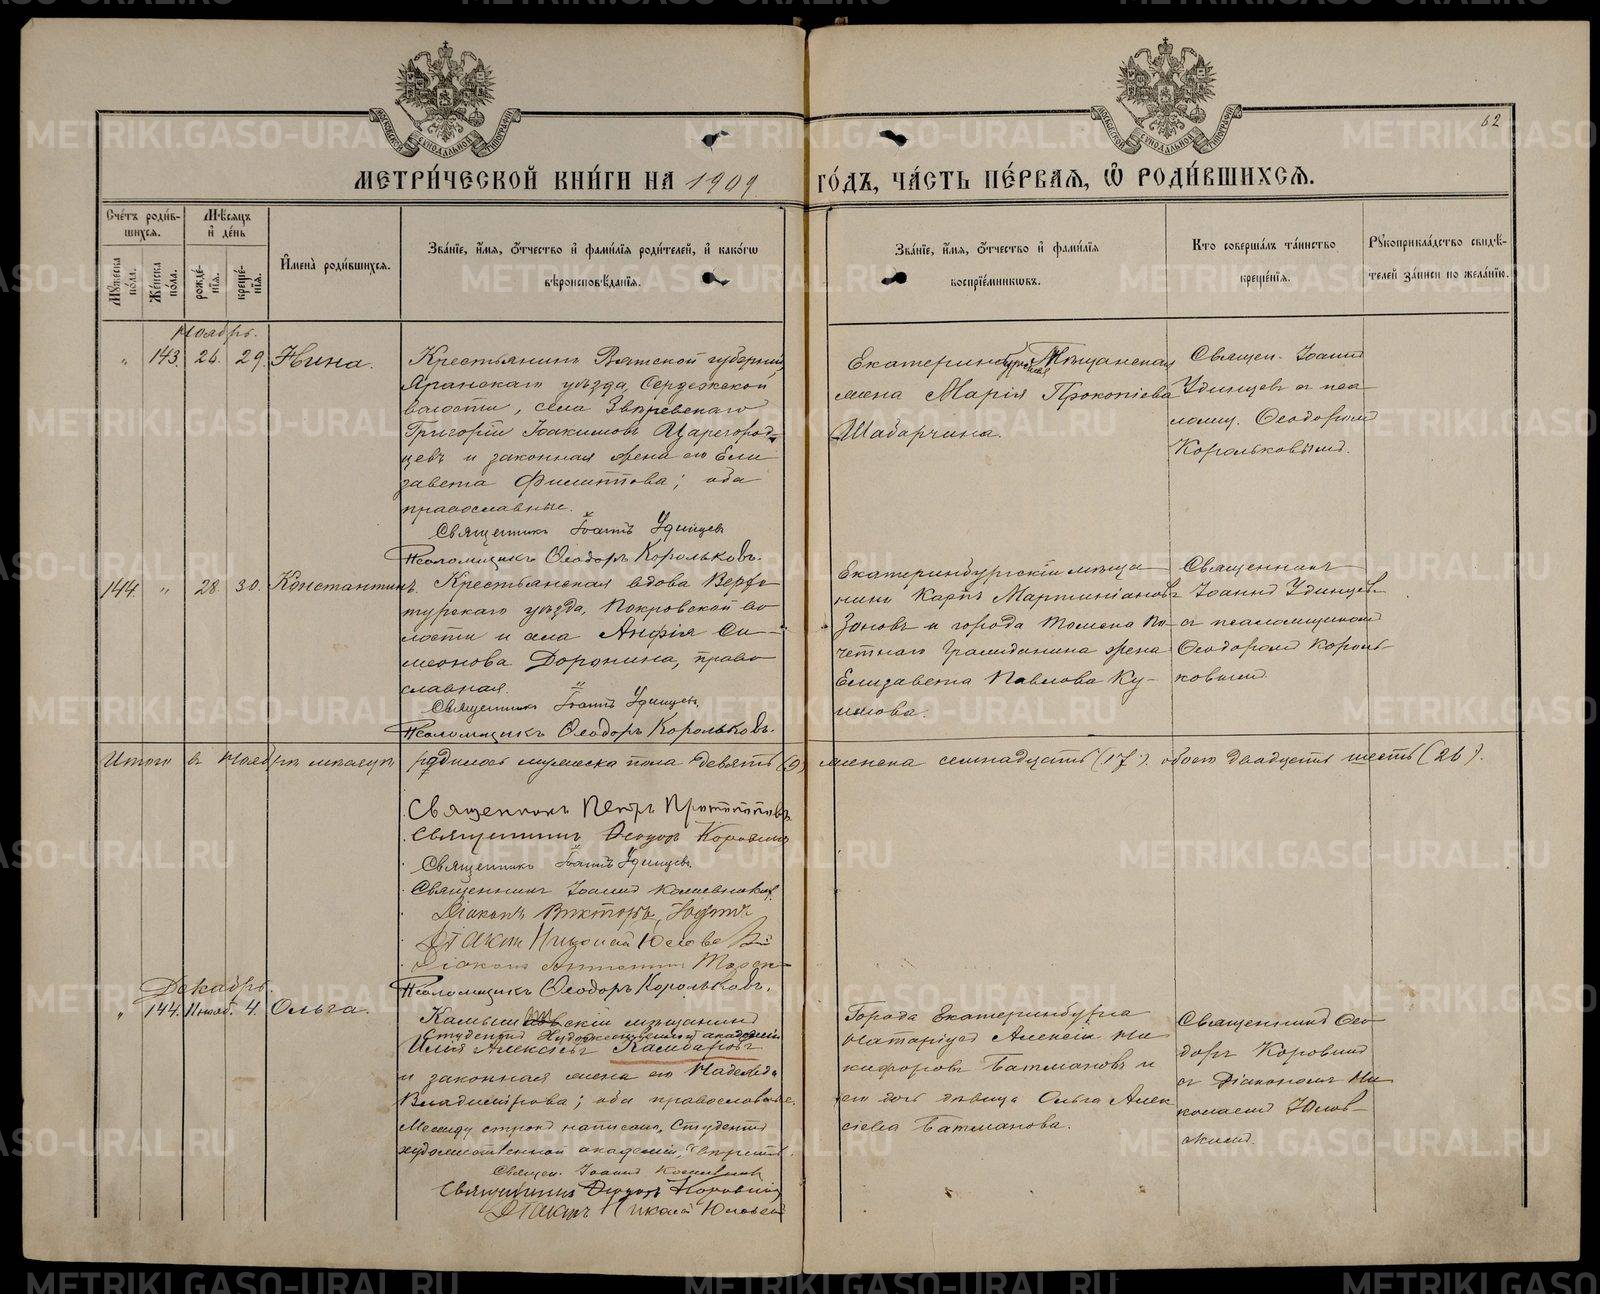 МЕТРИ́ЧЕСКОЙ КНИ́ГИ НА 1909 ГО́ДЪ, ЧА́СТЬ ПЕ́РВАЯ, Ѡ РОДИ́ВШИХСЯ.
62
Сче́тъ роди́в-
шихся.
Мꙋ́жеска по́ла.
Же́нска по́ла.
Мѣ́сяцъ и́ де́нь
рожде́-
нїя.
креще́-
нїя.
И҆мена̀ роди́вшихся.
Зва́нїе, и҆́мя, ѻ҆́тчество и҆ фами́лїя роди́телей, и҆ како́гѡ
вѣроисповѣ́данїя.
Зва́нїе, и҆́мя, ѻ҆́тчество и҆ фами́лїя
воспрїе́мникѡвъ.
Кто̀ соверша́лъ та́инство
креще́нїя.
Рꙋкоприкла́дство свидѣ́-
телей за́писи по жела́нїю.
Ноябрь.
" 143. 26. 29. Нина.
Крестьянинъ Вятской губерніи,
Яранскаго уѣзда, Сердежской
волости, села Звѣревскаго
Григорій Іоакимовъ Царегород-
цевъ и законная жена его Ели
завета Филиппова; оба
православные.
Священникъ Іоаннъ Удинцев
Псаломщикъ Ѳеодоръ Корольковъ.
Екатеринбургская Мѣщанская
жена Марія Прокопіева
Шабарчина.
Священ. Іоанн
Удинцев с пса
ломщ. Ѳеодором
Корольковым.
144 " 28. 30. Константинъ.
Крестьянская вдова Верхо
турскаго уѣзда, Покровской во
лости и села Анфія Си-
меонова Доронина, право
славная.
Священникъ Іоаннъ Удинцевъ
Псаломщикъ Ѳеодоръ Корольковъ.
Екатеринбургскій мѣща
нинъ Карпъ Мартиніановъ
Зоновъ и города Томска По-
четнаго Гражданина жена
Елизавета Павлова Ку-
Священникъ
Іоанн Удинцев
с псаломщиком
Ѳеодором Король-
ковым.
Итого в Ноябрѣ мѣсяцѣ родилось мужеска пола девять (9) женска семнадцать (17). обоего двадцать шесть (26).
Священникъ Петръ
Священникъ Ѳеодоръ Коровинъ
Священникъ Іоаннъ Удинцевъ
Священникъ Іоанн
Діаконъ Викторъ
Діаконъ Николай Юловскій
Діаконъ
Псаломщикъ Ѳеодоръ Корольковъ.
Декабрь.
" 144. 11 нояб. 4. Ольга.
Камышловскій мѣщанинъ
Студентъ Художественной академіи
Илія Алексіевъ Камбаровъ
и законная жена его Надежда
Владимірова; оба православные.
Между строк написано, Студентъ
художественной академіи, вѣрить.
Священ. Іоанн
Священникъ Ѳеодоръ Коровинъ
Діаконъ Николай Юловскій
Города Екатеринбурга
Нотаріус Алексій Ни
кифоровъ Батмановъ и
его дочь дѣвица Ольга Алек
сіева Батманова.
Священник Ѳео
доръ Коровин
с Діаконом Ни
колаем Юлов-
ским.
METRIKI.GASO-URAL.RU